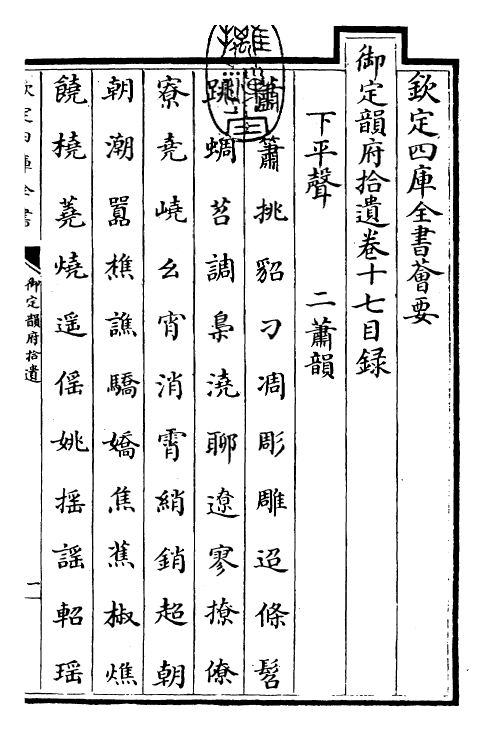 欽定四庫全書薈要
御定韻府拾遺卷十七目録
下平聲　二蕭韻
蕭簫挑貂刁凋彫雕迢條髫
跳蜩苕調梟澆聊遼寥撩僚
寮堯嶢幺宵消霄綃銷超朝
朝潮囂樵譙驕嬌焦蕉椒燋
饒橈蕘燒遥傜姚揺謡軺瑶
欽定四庫全書
御定韻府拾遺
一